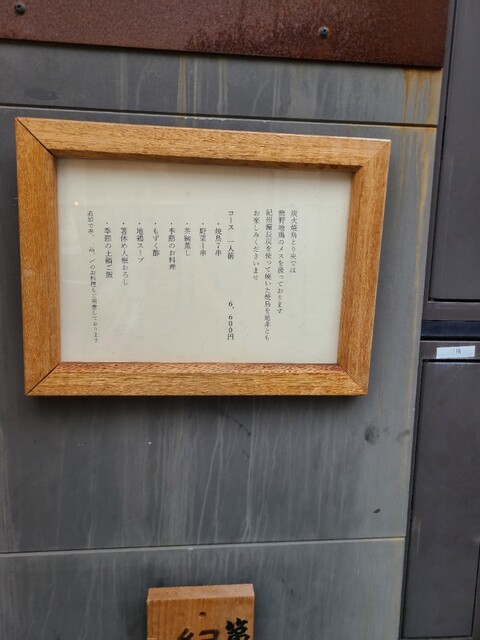 炭火焼鳥とり央では
熊野地鶏のメスを扱っております
紀州備長炭を使って焼いた焼鳥を是非とも
お楽しみくださいませ
コース 一人前 6,600円
・焼鳥7串
・野菜1串
・茶碗蒸し
・季節のお料理
・もずく酢
・地鶏スープ
・箸休め大根おろし
・季節の土鍋ご飯
追加で串、一品、〆のお料理もご用意しております